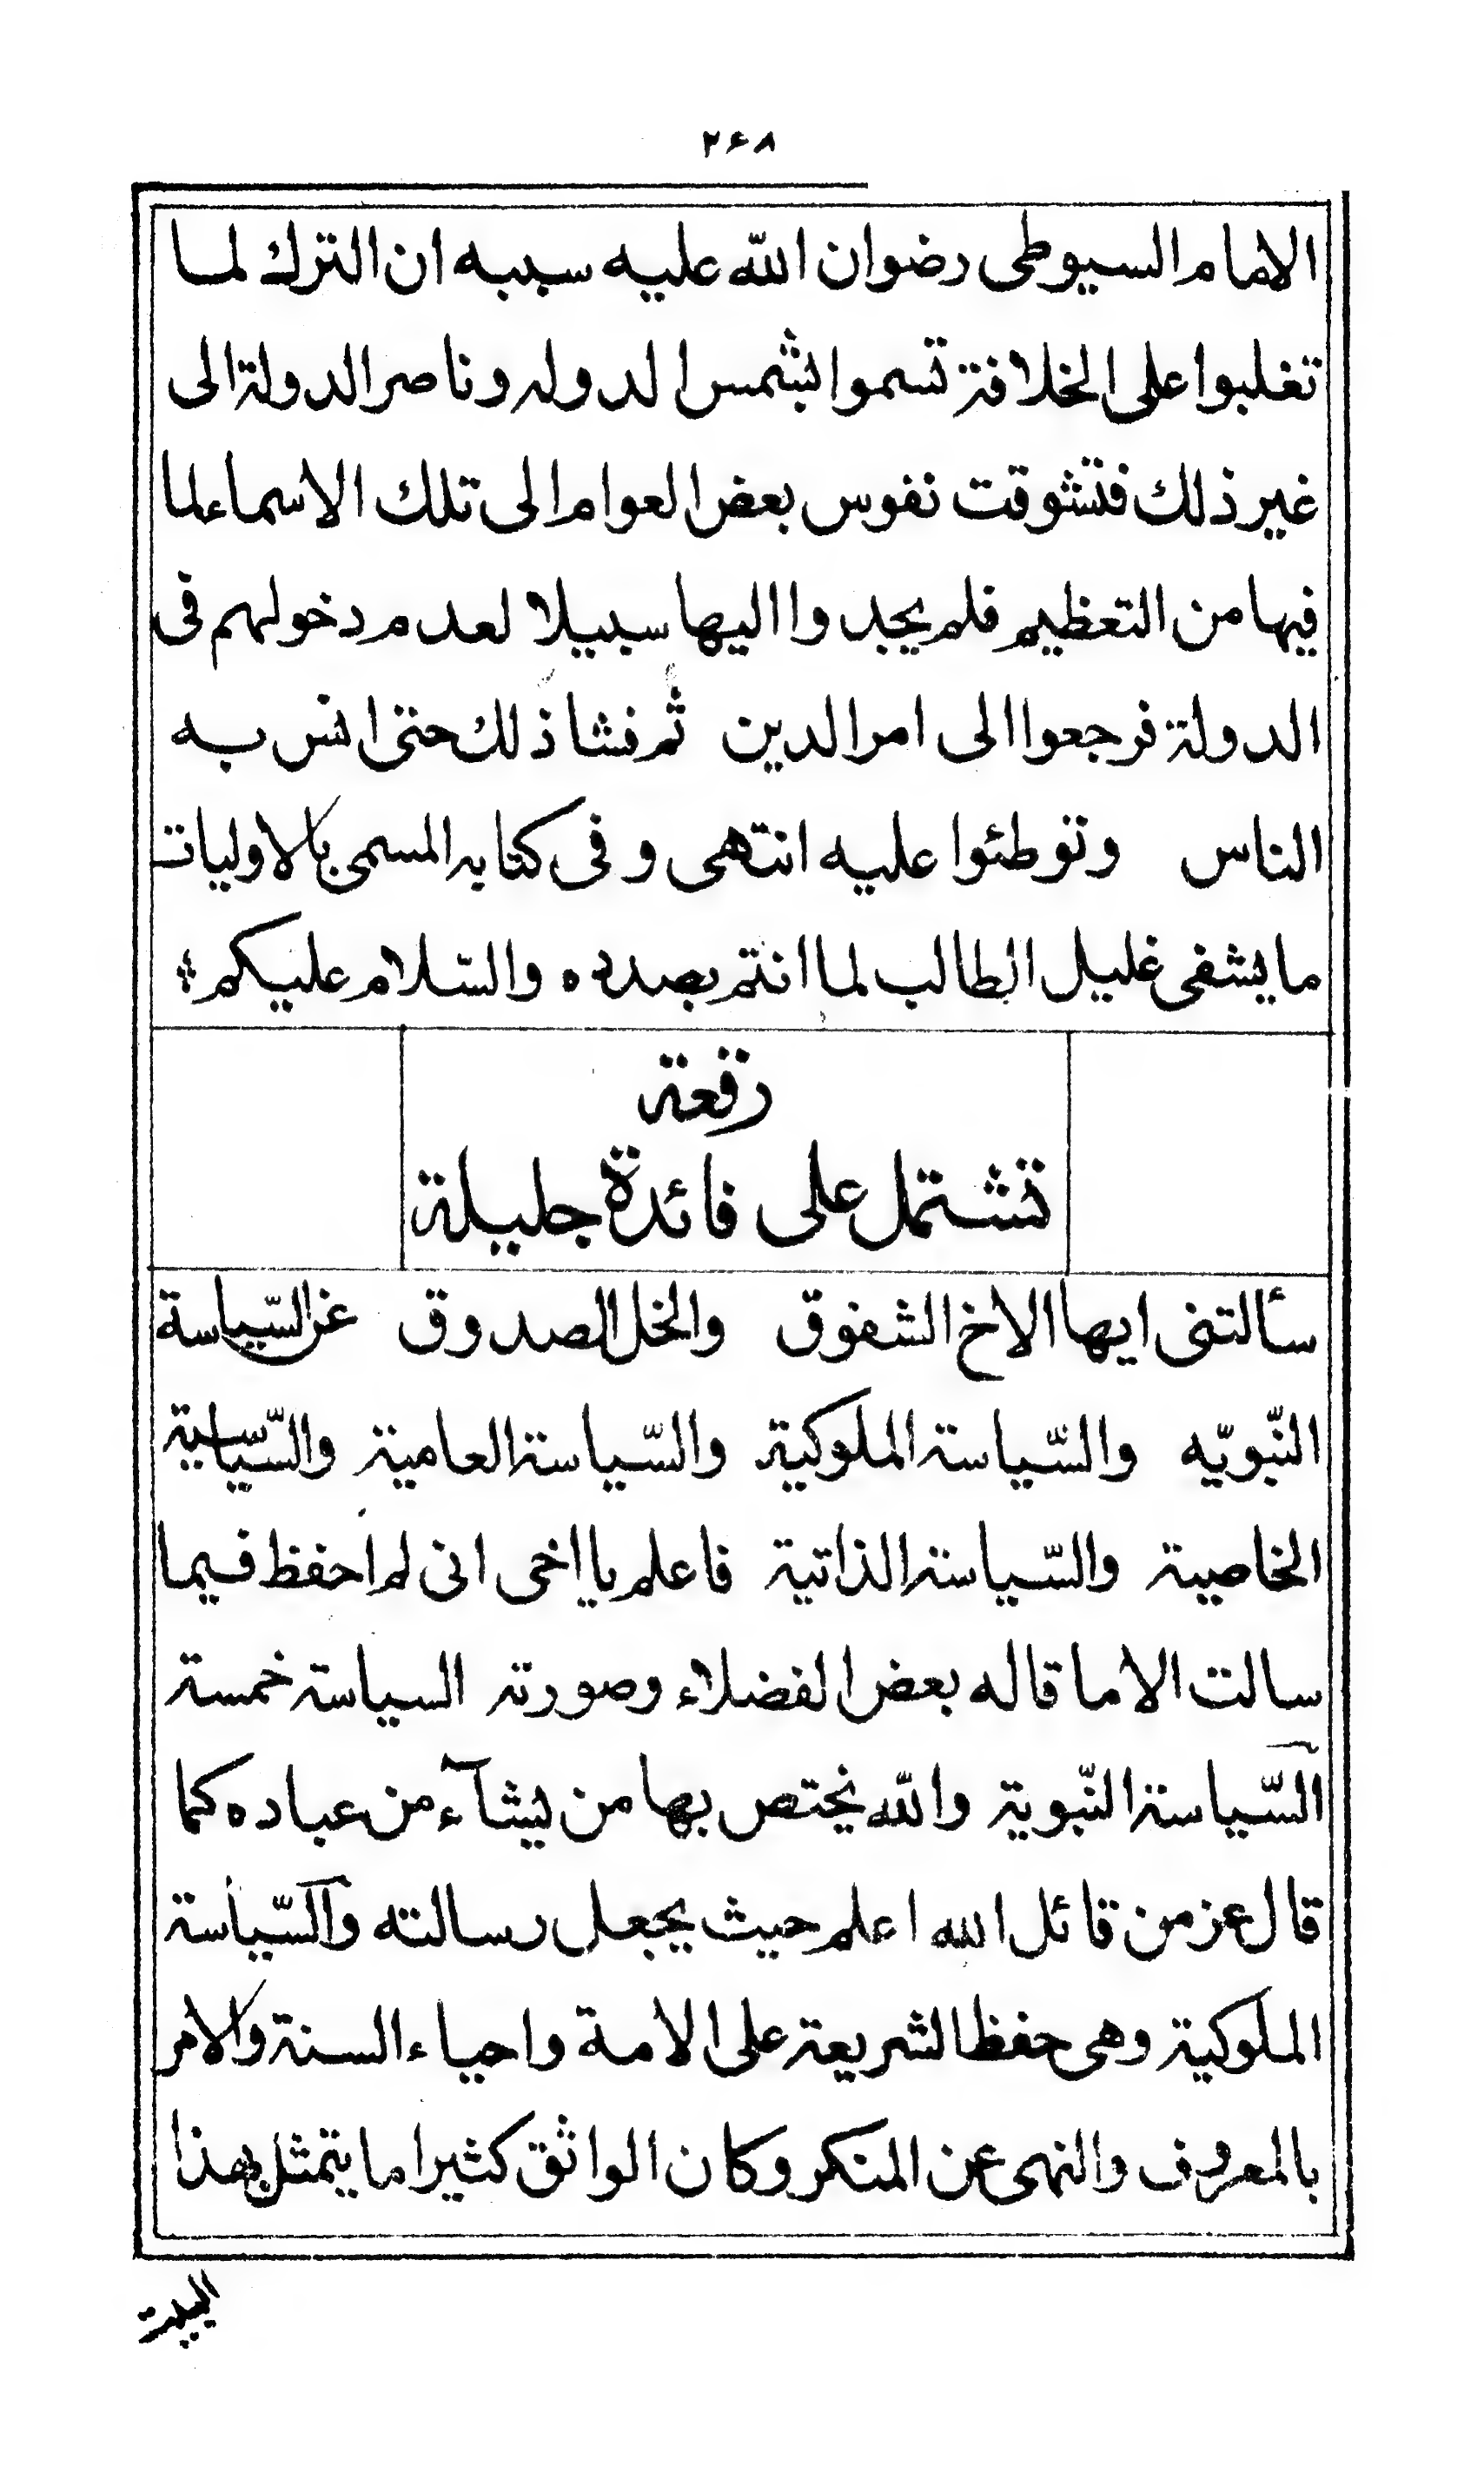 ٢٦٨
الامام السيوطى رضوان الله عليه سببه ان الترك لما
تغلبوا على الخلافة تسموا بشمس الدوله وناصر الدولة الى
غير ذلك فتشوقت نفوس بعض العوام الى تلك الاسماء لما
فيها من التعظيم فلم يجدوا اليها سبيلا لعدم دخولهم فى
الدولة فرجعوا الى امر الدين ثم فشا ذلك حتى انس به
الناس وتوطئوا عليه انتهى وفى كتابه المسمى بالاوليات
ما يشفى غليل الطالب لما انتم بصدده والسّلام عليكم
رقعة
تشتمل على فائدة جليلة
سألتنى ايها الاخ الشفوق والخل الصدوق عن السّياسة
النّبويّه والسّياسة الملوكية والسّياسة العامية والسّياسية
الخاصية والسّياسة الذاتية فاعلم يا اخى انى لم احفظ فيما
سالت الا ما قاله بعض الفضلاء وصورته السياسة خمسة
السّياسة النّبوية والله يختص بها من يشآء من عباده كما
قال عز من قائل الله اعلم حيث يجعل رسالته والسّياسة
الملوكية وهى حفظ الشريعة على الامة واحياء السنة والامر
بالمعروف والنهى عن المنكر وكان الواثق كثيرا ما يتمثل بهذا